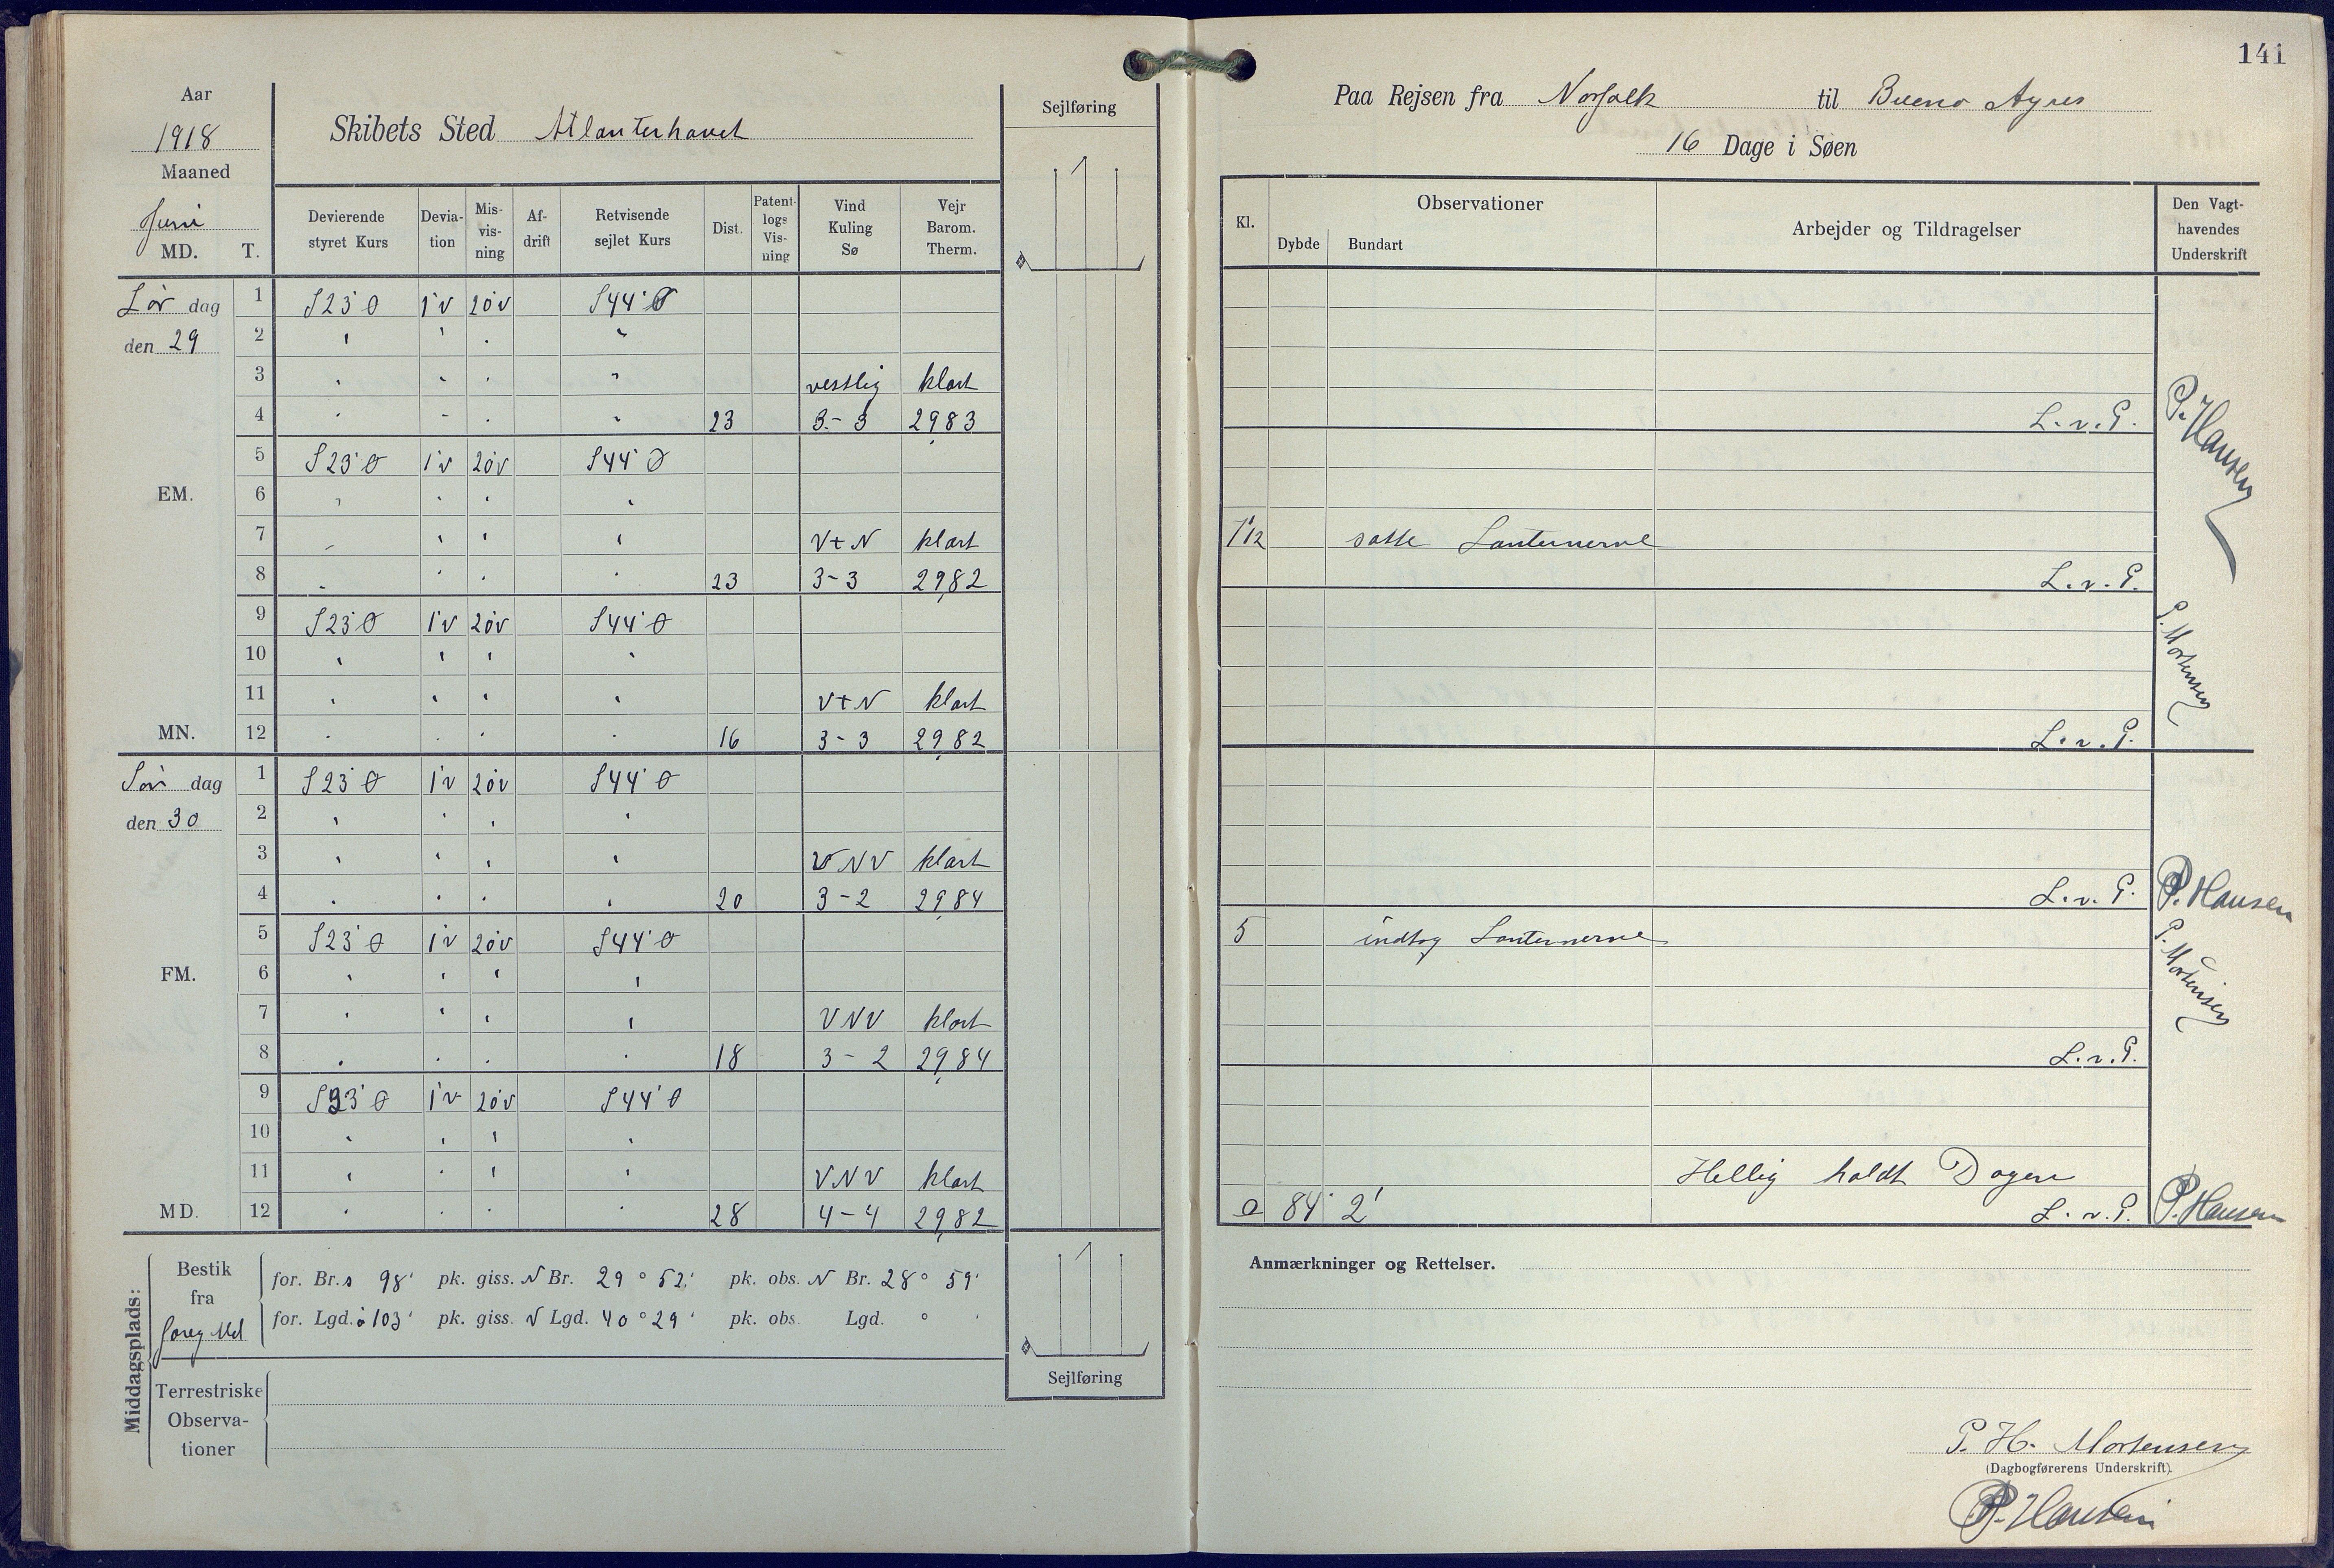 Aar
1918
Maaned
Juni
MD. T.
Skibets Sted Atlanterhavet
Devierende styret Kurs
Devia-tion
Mis-vis-ning
Af-drift
Retvisende sejlet Kurs
Dist.
Patent-logs Vis-ning
Vind Kuling Sø
Vejr Barom. Therm.
Sejlføring
Lør dag 1 S23°Ø 1°v 20°v S44°Ø
den 29 2 " " " "
3 " " " " vestlig klart
4 " " " " 23 3-3 29,83
5 S23°Ø 1°v 20°v S44°Ø
EM. 6 " " " "
7 " " " " V+N klart
8 " " " " 23 3-3 29,82
9 S23°Ø 1°v 20°v S44°Ø
10 " " " "
11 " " " " V+N klart
MN. 12 " " " " 16 3-3 29,82
Søn dag 1 S23°Ø 1°v 20°v S44°Ø
den 30 2 " " " "
3 " " " " VNV klart
4 " " " " 20 3-2 29,84
5 S23°Ø 1°v 20°v S44°Ø
FM. 6 " " " "
7 " " " " VNV klart
8 " " " " 18 3-2 29,84
9 S23°Ø 1°v 20°v S44°Ø
10 " " " "
11 " " " " VNV klart
MD. 12 " " " " 28 4-4 29,82
Middagsplads:
Bestik fra foreg Md
for. Br. s 98' pk. giss. N Br. 29° 52' pk. obs. N Br. 28° 59'
for. Lgd. ø 103' pk. giss. V Lgd. 40° 29' pk. obs. Lgd. ° '
Terrestriske Observa-tioner
Sejlføring
141
Paa Rejsen fra Norfolk til Bueno Ayres
16 Dage i Søen
Kl.
Observationer
Dybde Bundart
Arbejder og Tildragelser
Den Vagt-havendes Underskrift
L.v.P. P. Hansen
7 1/2 satte Lanternerne
L.v.P.
L.v.P. P. Mortensen
L.v.P. P. Hansen
5 indtog Lanternerne
L.v.P. P. Mortensen
Hellig holdt Dagen
84° 2' L.v.P. P. Hansen
Anmærkninger og Rettelser.
P. H. Mortensen
(Dagbogførerens Underskrift).
P. Hansen